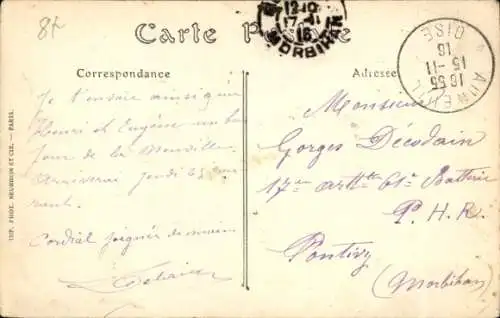 82
Carte Postale
12-10
17-11
16
MORBIHAN
AUNEUIL
16 55
15-11
16
OISE
Correspondance
Adresse
Je t'envoie ainsi qu'à
Henri et Eugène un bon
jour de la
Arriverai jeudi
Cordial poignée de main
Monsieur
Georges Décodain
17me artie 61e Batterie
P. H. R.
Pontivy
(Morbihan)
IMP. PHOT. NEURDEIN ET CIE. — PARIS.